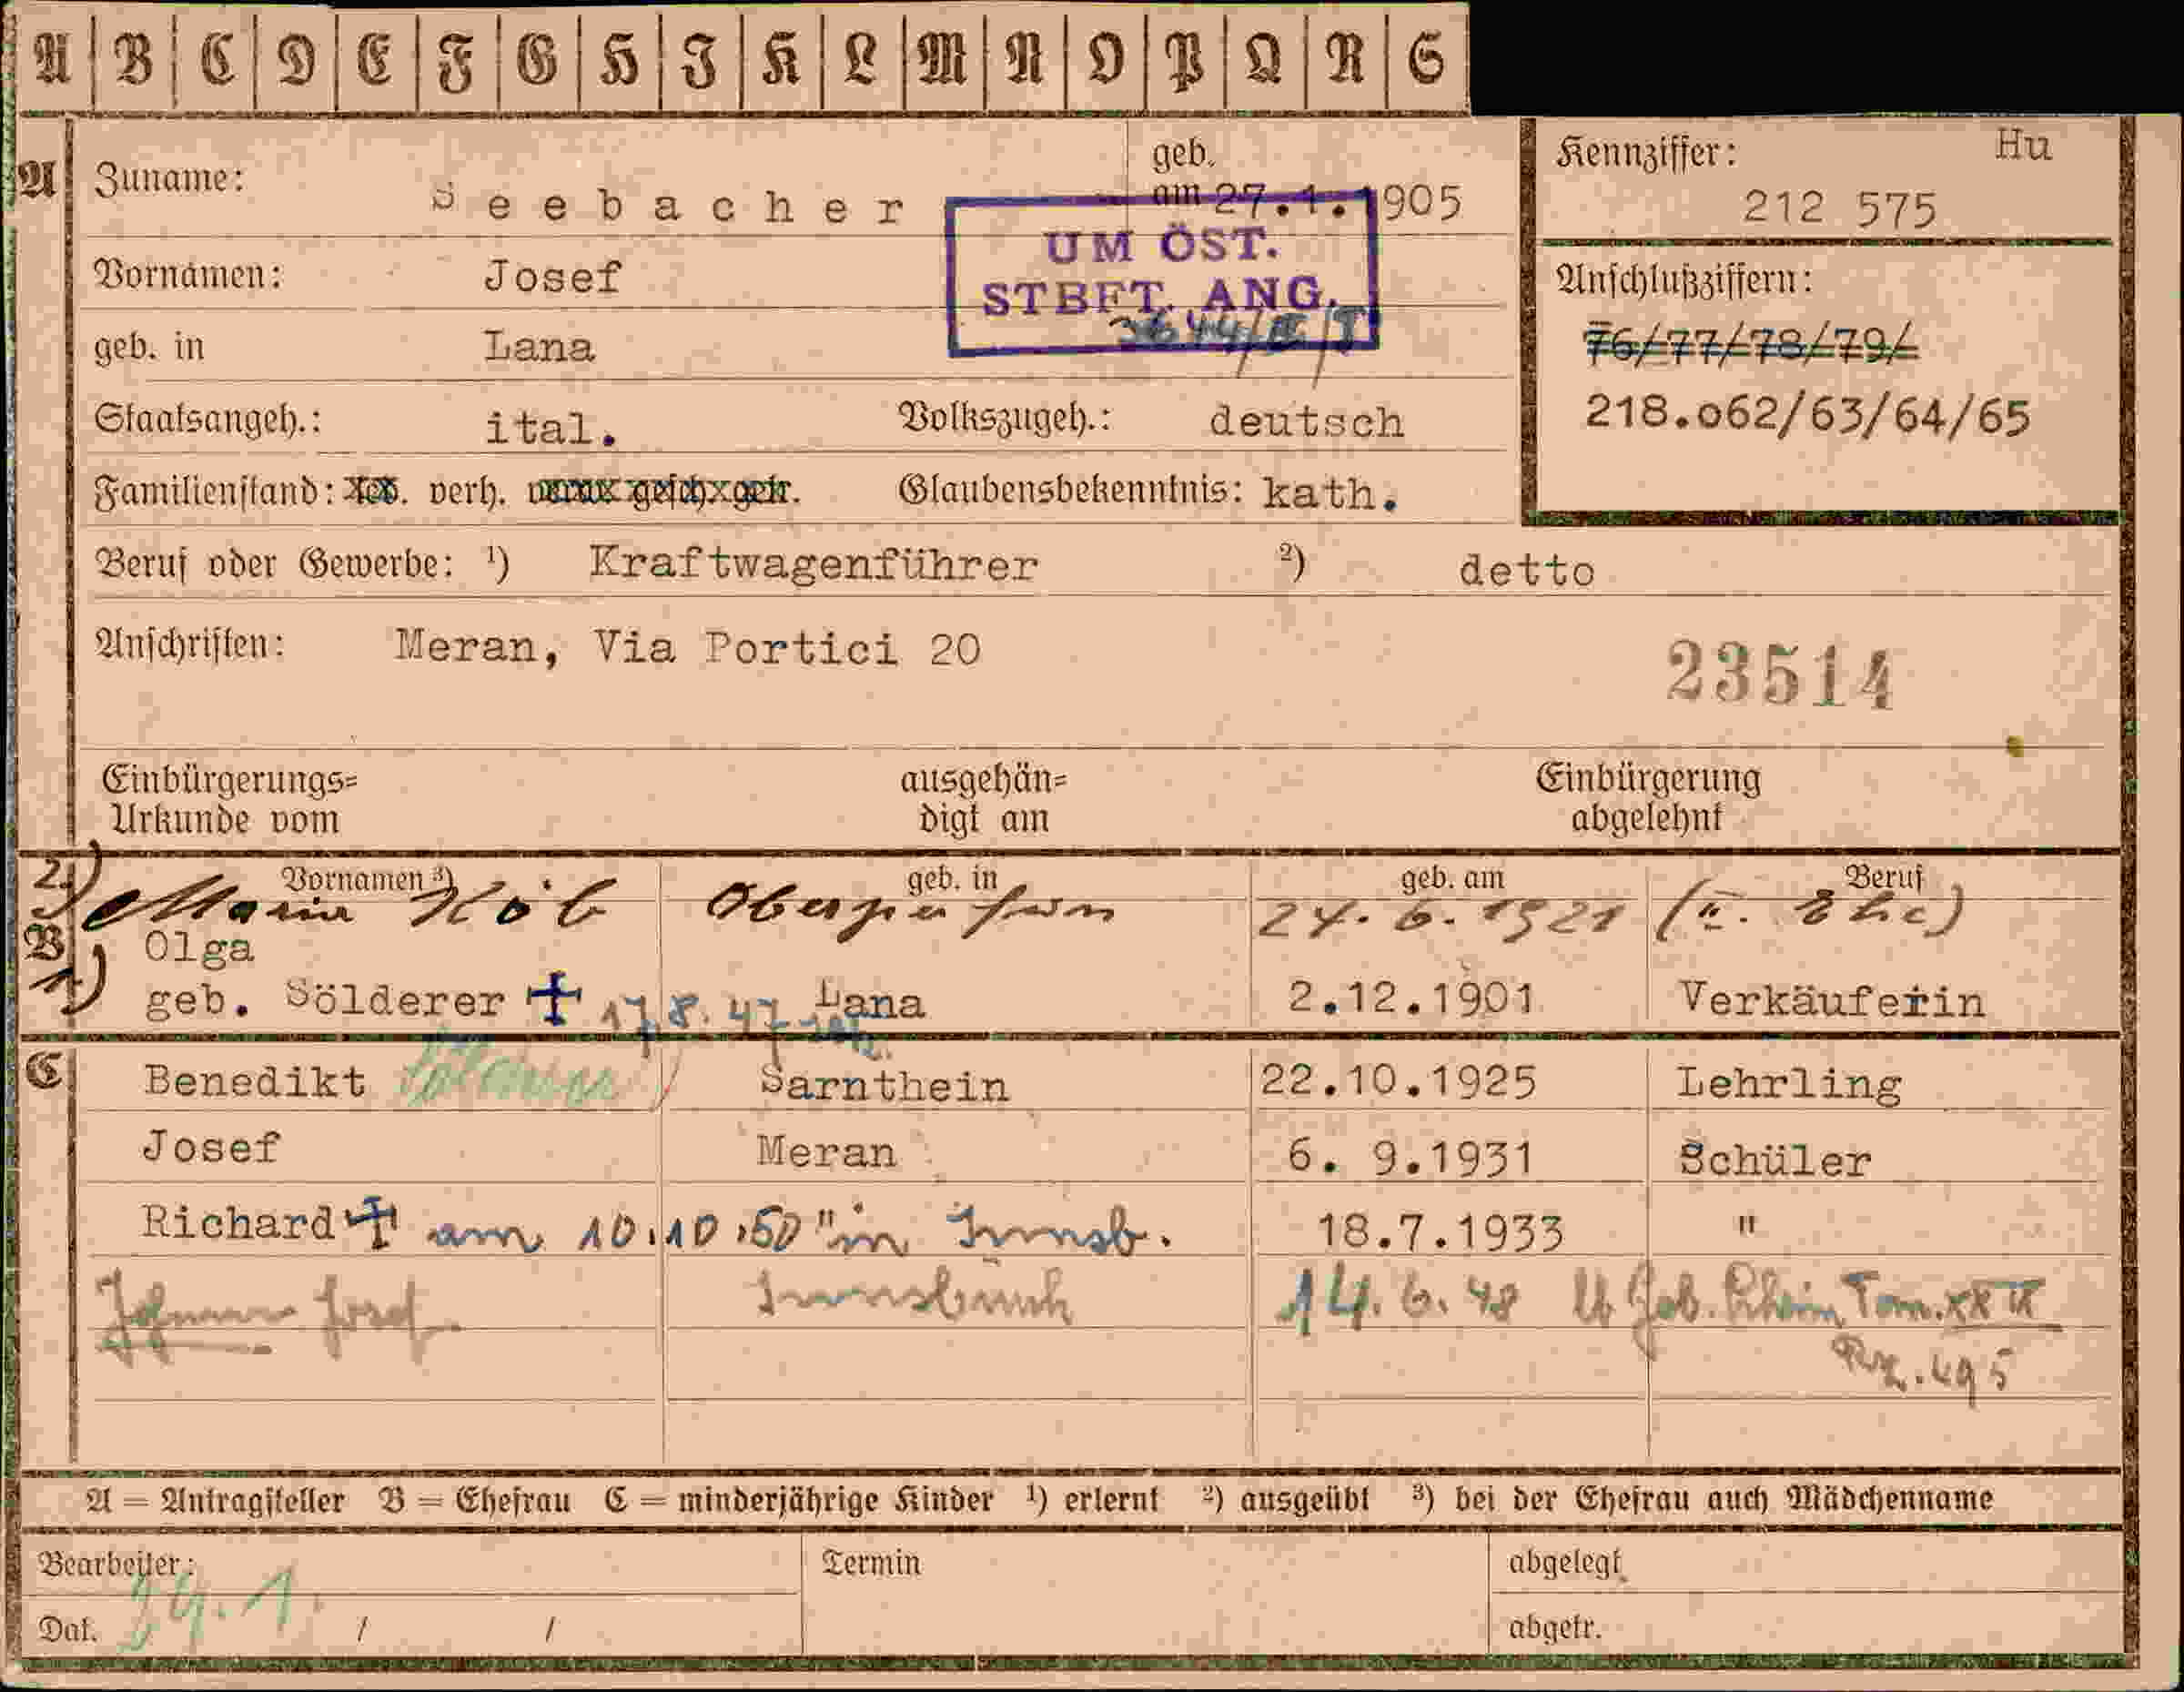 A B C D E F G H I K L M N O P Q R S
A Zuname: Seebacher geb. am 27.1.1905
Kennziffer: Hu
212 575
UM ÖST.
STBFT. ANG.
3644/II/
Vornamen: Josef
Anschlußziffern:
geb. in Lana
76/77/78/79/
218.062/63/64/65
Staatsangeh.: ital. Volkszugeh.: deutsch
Familienstand: led. verh. verw. gesch. getr. Glaubensbekenntnis: kath.
Beruf oder Gewerbe: ¹) Kraftwagenführer ²) detto
Anschriften: Meran, Via Portici 20
23514
Einbürgerungs= ausgehän= Einbürgerung
Urkunde vom digt am abgelehnt
Vornamen ³) geb. in geb. am Beruf
2.) Maria Köb Oberperfuss 24.6.1921 (II. Ehe)
B Olga
1.) geb. Sölderer † 17.8.47 Lana 2.12.1901 Verkäuferin
C Benedikt Sarnthein 22.10.1925 Lehrling
Josef Meran 6. 9.1931 Schüler
Richard † am 10.10.50 " in Innsb. 18.7.1933 "
Johann Josef Innsbruck 14.6.48 Geb. Tom. XXIX
495
A = Antragsteller B = Ehefrau C = minderjährige Kinder ¹) erlernt ²) ausgeübt ³) bei der Ehefrau auch Mädchenname
Bearbeiter: Termin abgelegt
Dat. / / abgetr.